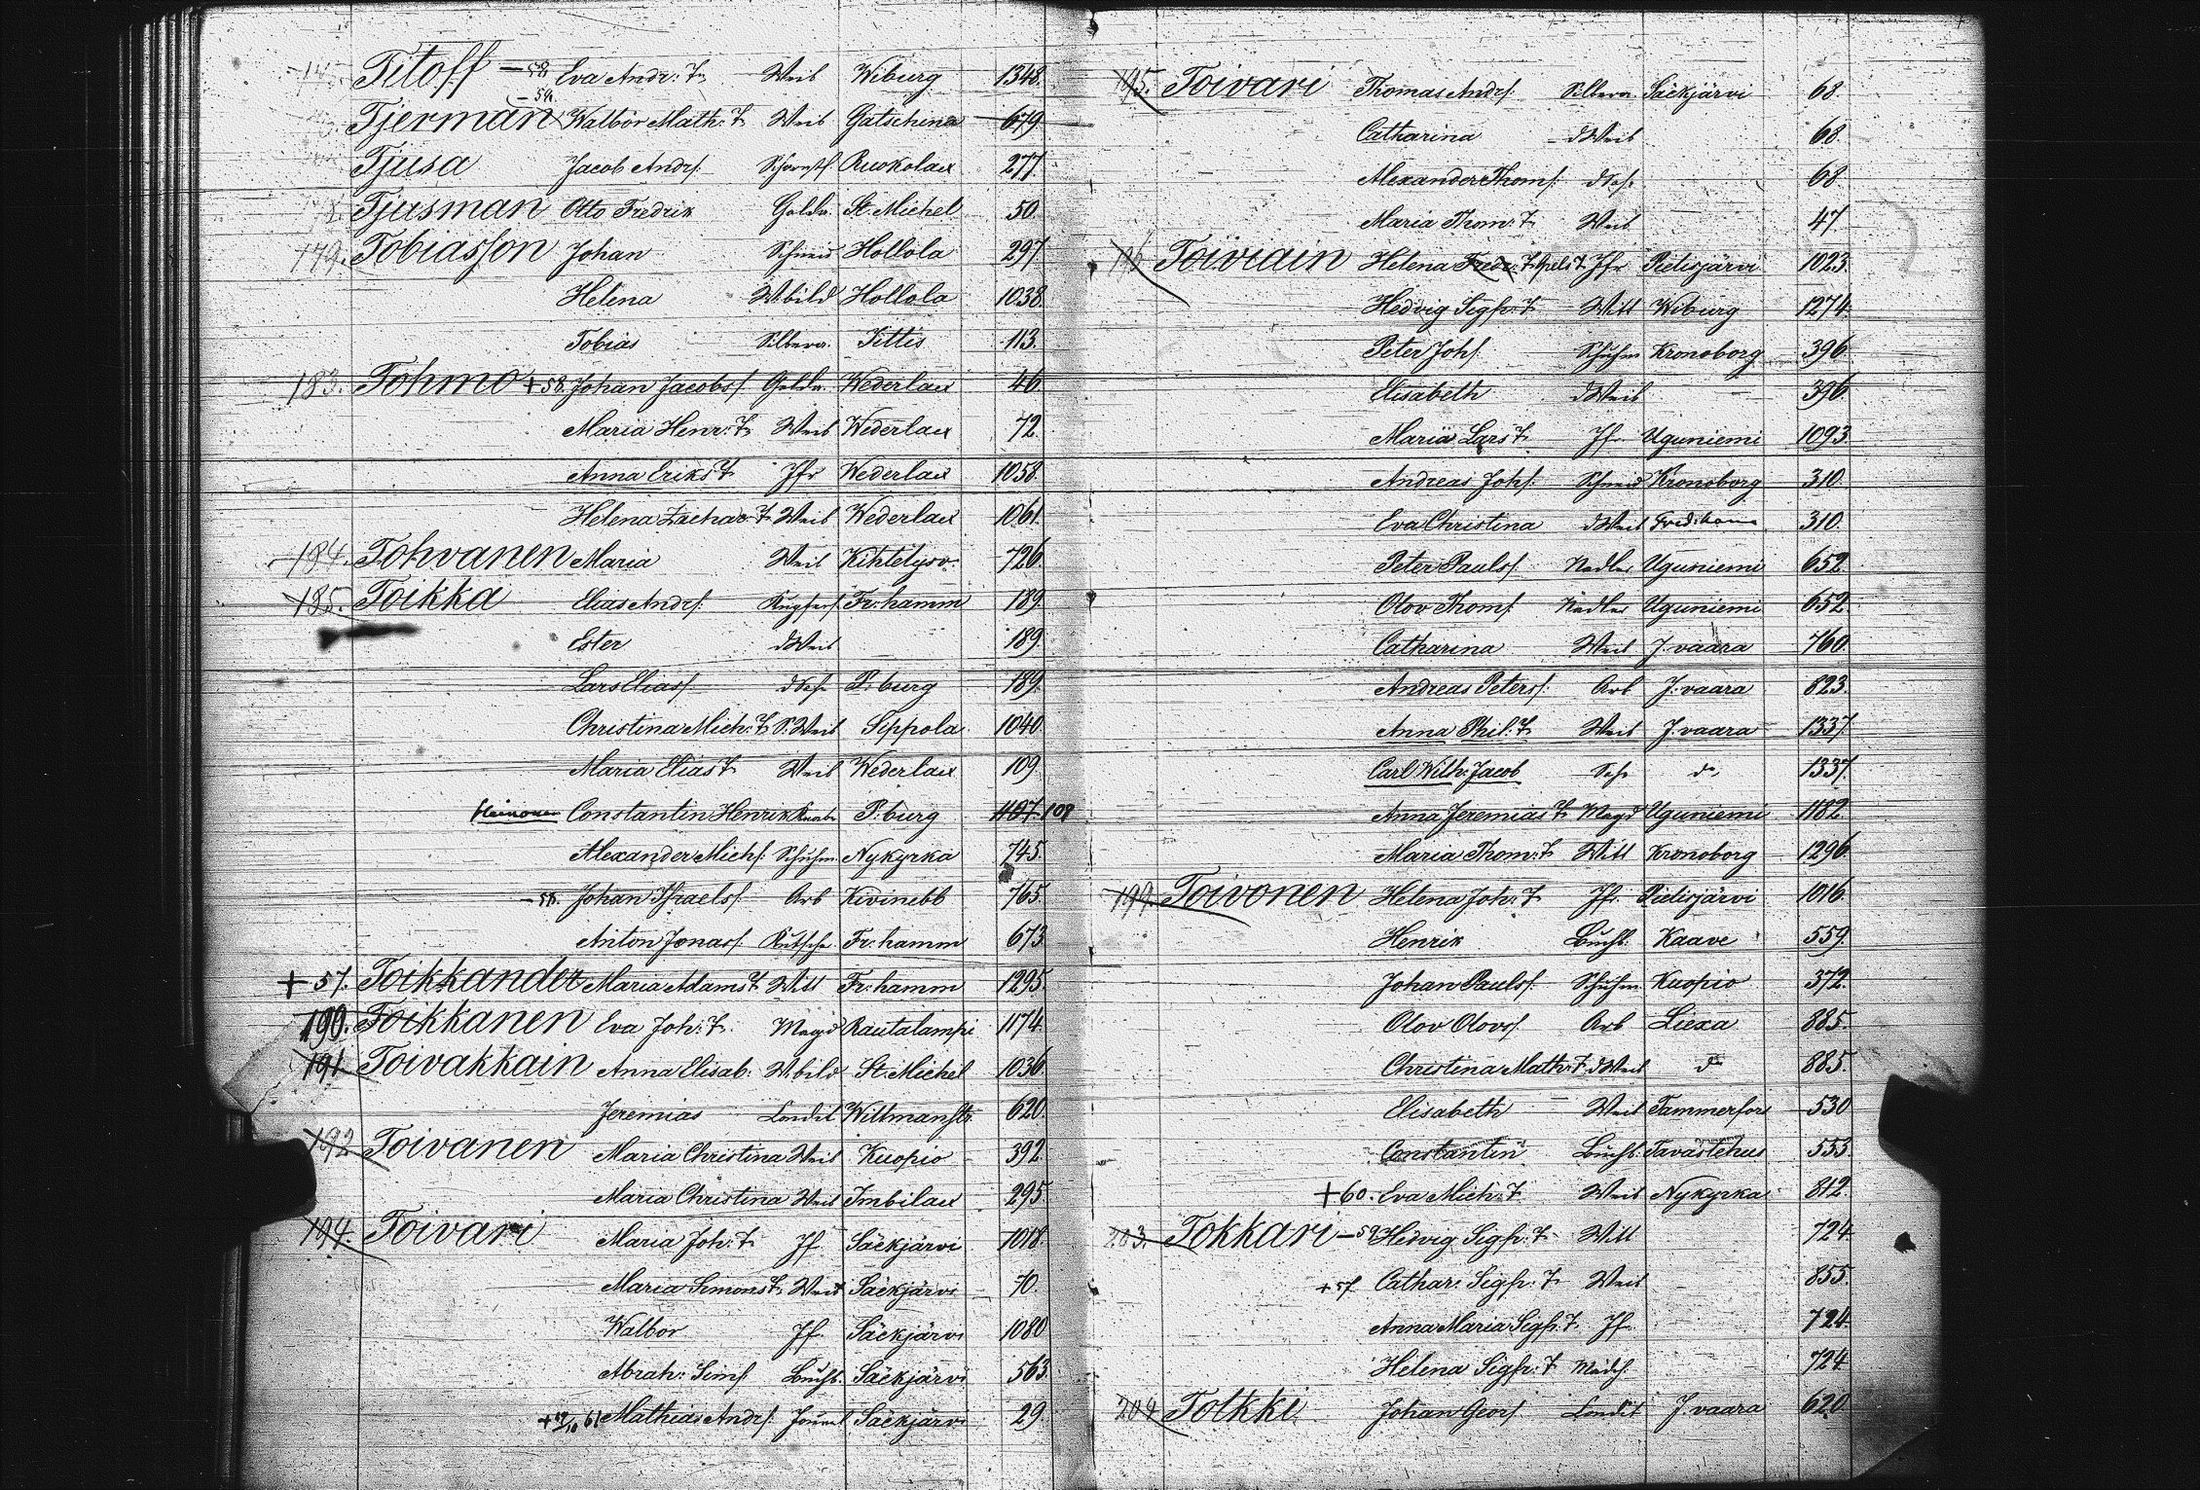 145. Titoff -58 Eva Andr: T. Weib Wiburg 1348.
Tjerman -59. Walbor Math: T. Weib Gatschina 679
Tjusa Jacob Andrs. Ruokolax 277.
Tjusman Otto Fredrik Golda. St. Michel 50.
179. Tobiasson Johan Schneid Hollola 297
Helena Wbild Hollola 1038.
Tobias Silbera. Iittis 113.
183. Tohmo +58. Johan Jacobss. Golda. Wederlax 46.
Maria Henr: T. Weib Wederlax 72.
Anna Eriks T. Jfr Wederlax 1058.
Helena Zachar: T. Weib Wederlax 1061.
184. Tohvanen Maria Weib Kihtelysv. 726.
185. Toikka Elias Andrs. Fr: hamm 189.
Ester dWeib 189.
Lars Eliass. dSohn P: burg 189.
Christina Mich: T. S. Weib Sippola 1040.
Maria Elias T. Weib Wederlax 109
Heinonen Constantin Henrik Knabe P: burg 1107 109
Alexander Michs. Schuhm. Nykyrka 745.
-58. Johan Israelss. Arb Kivinebb 765.
Anton Jonass. Kutscher Fr: hamm 673.
+57. Toikkander Maria Adams T. Witt Fr: hamm 1295.
190. Toikkanen Eva Joh: T. Magd Rautalampi 1174.
191. Toivakkain Anna Elisab: Wbild St. Michel 1036.
Jeremias Londit Willmanstr. 620.
192 Toivanen Maria Christina Weib Kuopio 392.
Maria Christina Weib Imbilax 295.
194. Toivari Maria Joh: T. Jf. Säckjärvi 1018.
Maria Simons T. Weib Säckjärvi 70.
Walbor Jf. Säckjärvi 1080
Abrah: Sims. Buchb. Säckjärvi 563.
61 Mathias Andrs. Säckjärvi 29.
195. Toivari Thomas Andrs. Silbera Säckjärvi 68.
Catharina dWeib 68.
Alexander Thoms. dSohn 68.
Maria Thom: T. Weib 47.
196 Toiviain Helena Fredr: T. Jfr Pielisjärvi 1023.
Hedvig Sigfr: T. Witt Wiburg 1274.
Peter Johs. Schuhm Kronoborg 396.
Elisabeth dWeib 396.
Maria Lars T. Jfr Uguniemi 1093.
Andreas Johs. Schneid Kronoborg 310.
Eva Christina dWeib Fredrhamn 310.
Peter Paulss. Nadler Uguniemi 652.
Olov Thoms. Nadler Uguniemi 652.
Catharina Weib J. vaara 760.
Andreas Peterss. Arb J. vaara 823.
Anna Phil: T. Weib J. vaara 1337.
Carl Wilh: Jacob Sohn do 1337.
Anna Jeremias T. Magd Uguniemi 1182.
Maria Thom: T. Witt Kronoborg 1296.
199. Toivonen Helena Joh: T. Jfr. Pielisjärvi 1016.
Henrik Buchb: Kaave 559.
Johan Paulss. Schuhm Kuopio 372.
Olov Olovss. Arb Liexa 885.
Christina Math: T. dWeib do 885.
Elisabeth Weib Tammerfors 530
Constantin Buchb: Tavastehus 533.
+60. Eva Mich: T. Weib Nykyrka 812.
203. Tokkari -59 Hedvig Sigfr: T. Witt 724.
+57. Cathar: Sigfr: T. Weib 855.
Anna Maria Sigfr: T. Jf. 724.
Helena Sigfr: T. Mädch. 724
204 Tolkki Johan Geors. Londit J. vaara 620.